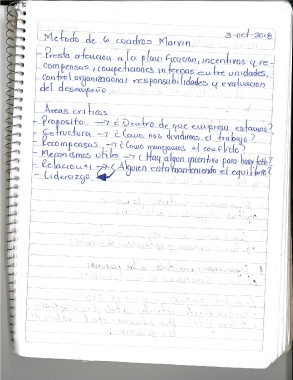 3-oct-2018
Metodo de 6 cuadros Marvin.
- Presta atencion a la planificacion, incentivos y re-
compensas, competiciones internas entre unidades,
control organizacional responsabilidades y evaluacion
del desempeño.
Areas criticas
- Proposito → ¿Dentro de que empresa estamos?
- Estructura → ¿Como nos dividimos el trabajo?
- Recompensas → ¿Como manejamos el conflicto?
- Mecanismos utiles → ¿Hay algun incentivo para hacer todo?
- Relaciones → ¿Alguien esta manteniendo el equilibrio?
- Liderazgo